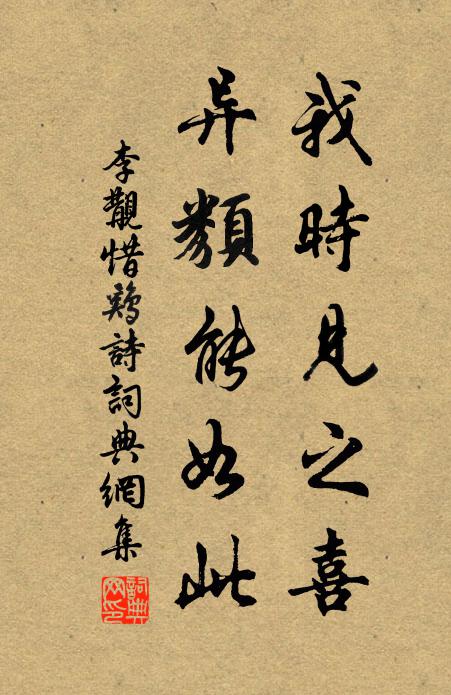 我時見之喜
异類能如此
李觀惜鷄詩詞典網集
詞典網印